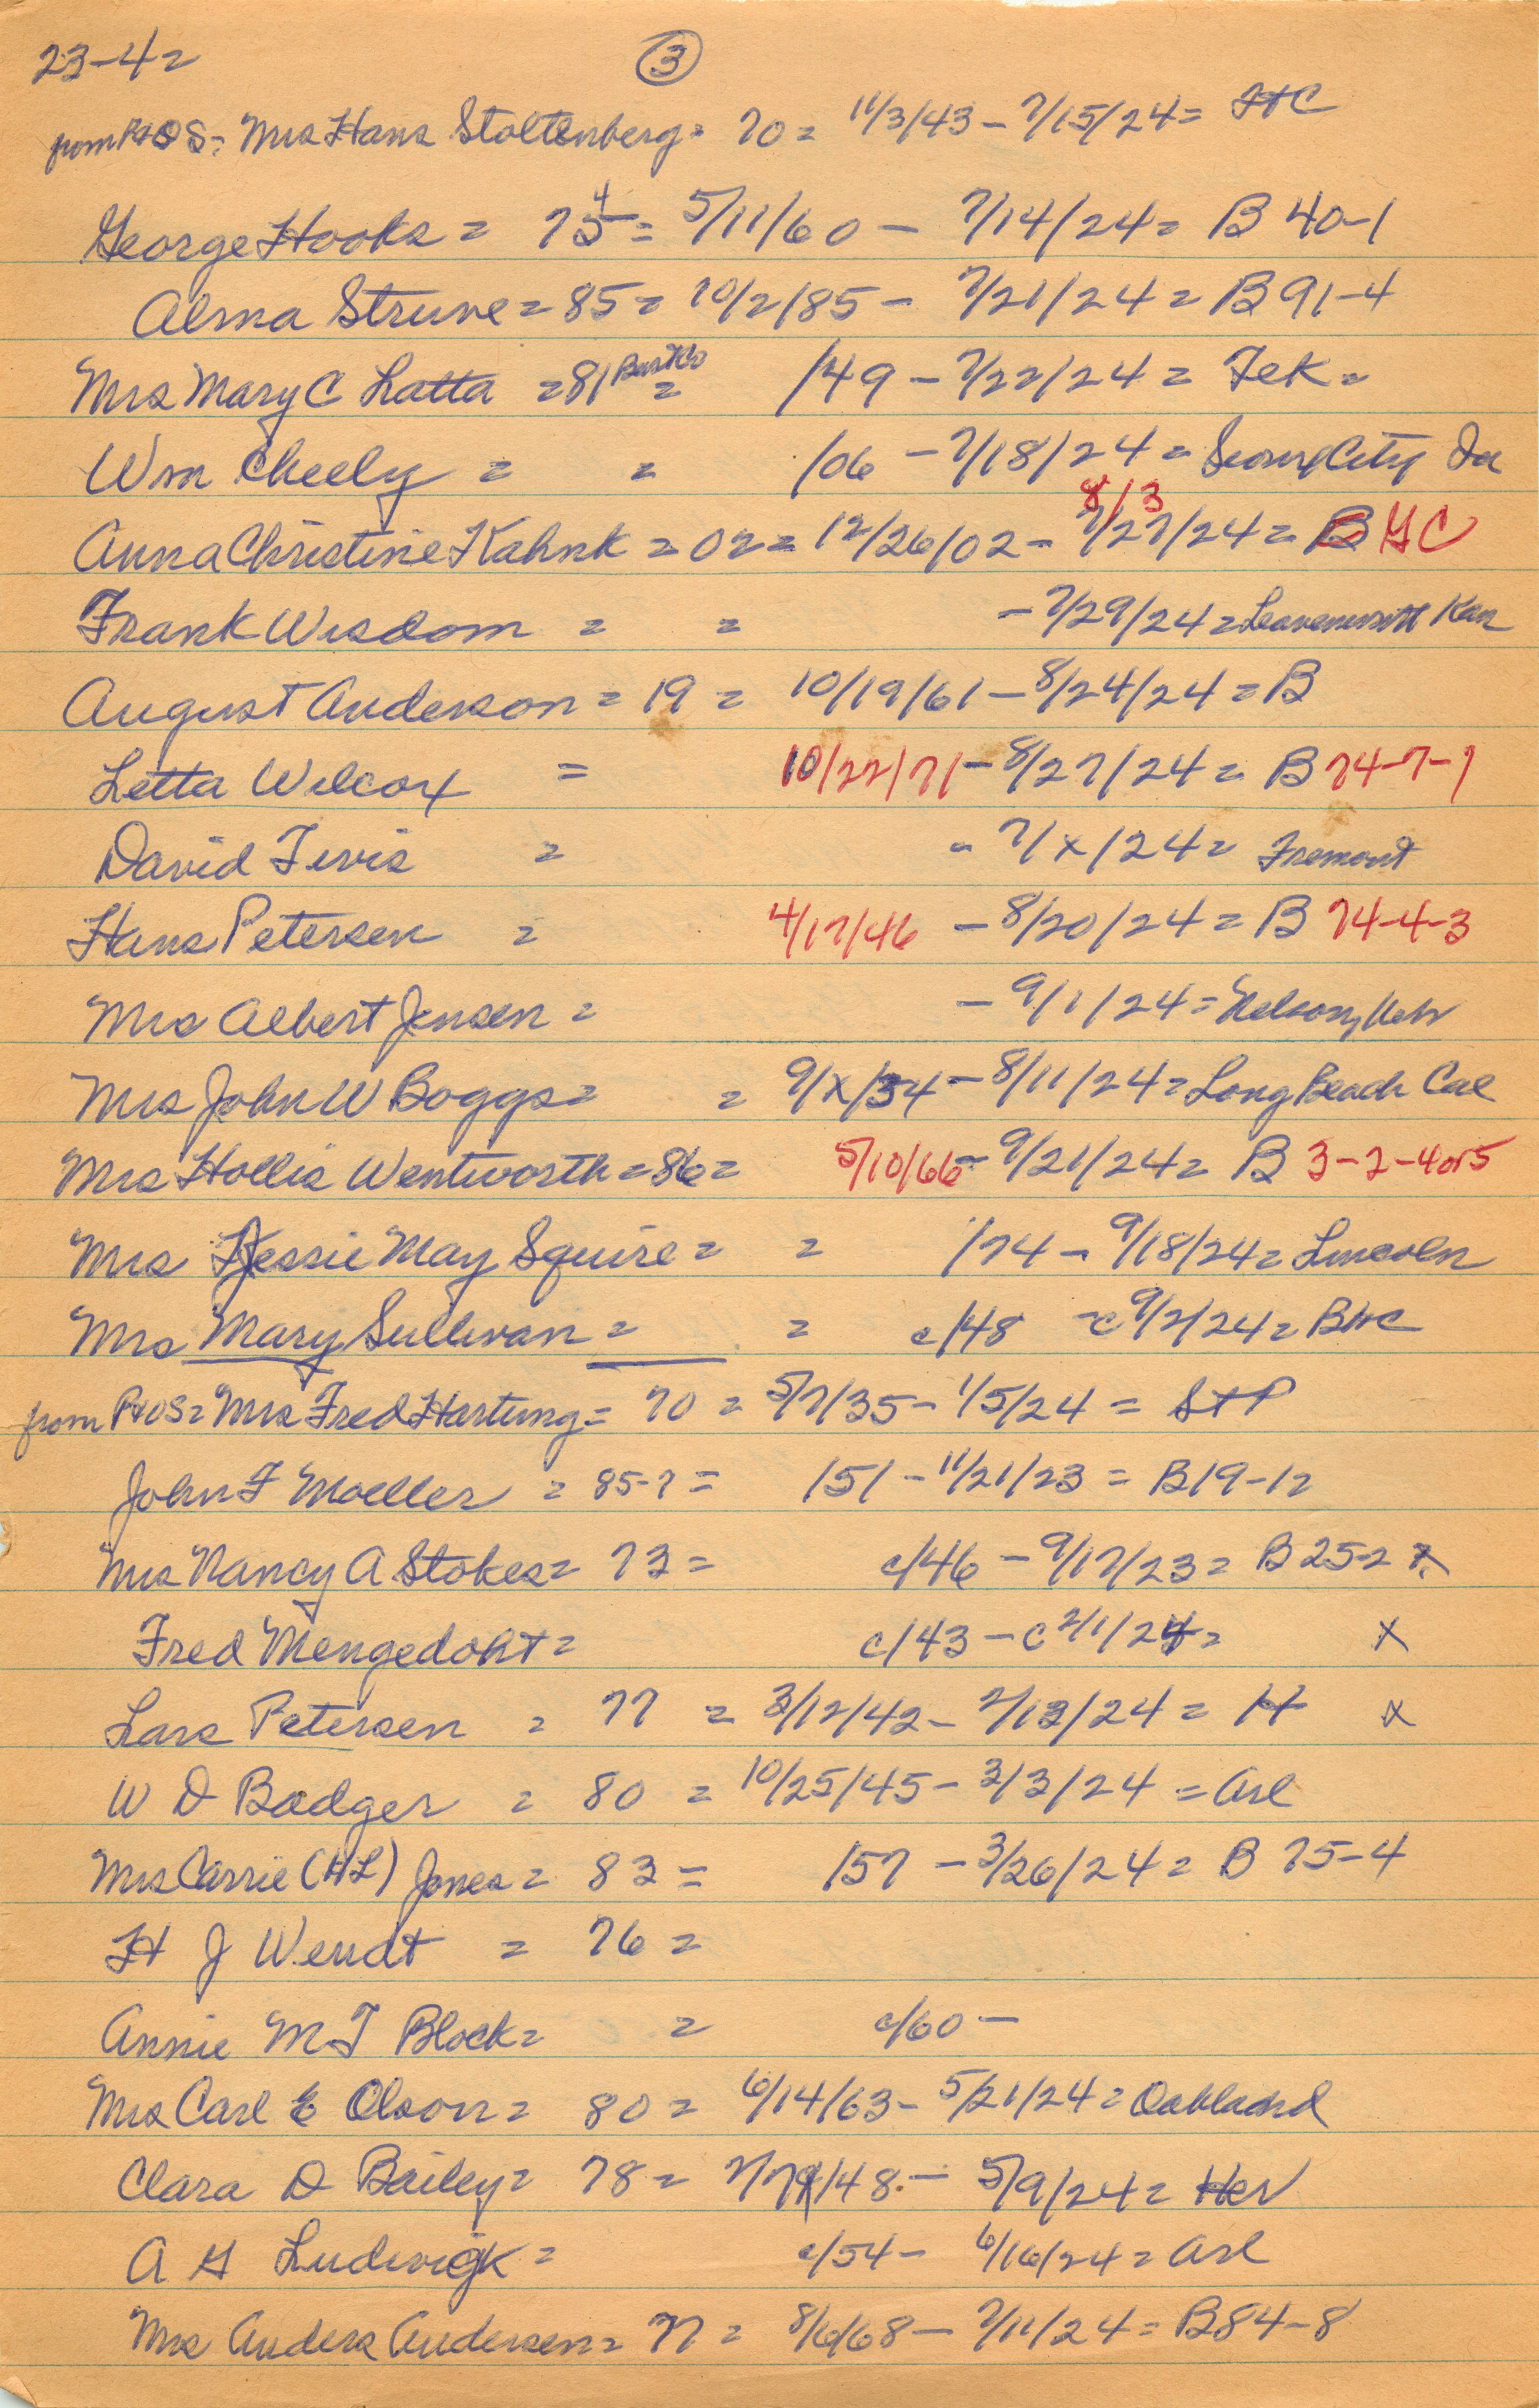 23-42 ③
from P&OS = Mrs Hans Stoltenberg = 70 = 11/3/43 - 7/15/24 = FHC
George Hooks = 75 4 = 5/11/60 - 7/14/24 = B 40-1
Alma Struve = 85 = 10/2/85 - 7/21/24 = B 91-4
Mrs Mary C Latta = 81 Burt Co = /49 - 7/22/24 = Tek =
Wm Cheely = = /06 - 7/18/24 = Sioux City Ia
8/3
Anna Christine Kahnk = 02 = 12/26/02 - 7/27/24 = B GC
Frank Wisdom = = - 7/29/24 = Leavenworth Kan
August Anderson = 19 = 10/19/61 - 8/24/24 = B
Letta Wilcox = 10/22/71 - 8/27/24 = B 74-7-1
David Tevis = - 7/x/24 = Fremont
Hans Petersen = 4/17/46 - 8/20/24 = B 74-4-3
Mrs Albert Jensen = - 9/1/24 = Nelson, Nebr
Mrs John W Boggs = = 9/x/34 - 8/11/24 = Long Beach Cal
Mrs Hollis Wentworth = 86 = 5/10/66 - 9/21/24 = B 3-2-4or5
Mrs Jessie May Squire = = /74 - 9/18/24 = Lincoln
Mrs Mary Sullivan = = c/48 - c9/2/24 = BHC
from P&OS = Mrs Fred Hartung = 70 = 5/7/35 - 1/5/24 = StP
John F Moeller = 85-7 = /51 - 11/21/23 = B19-12
Mrs Nancy A Stokes = 73 = c/46 - 9/17/23 = B 25-2 x
Fred Mengedoht = c/43 - c 2/1/24 = x
Lars Petersen = 77 = 3/12/42 - 2/13/24 = H x
W D Badger = 80 = 10/25/45 - 3/3/24 = Arl
Mrs Carrie (HL) Jones = 83 = /57 - 3/26/24 = B 75-4
H J Wendt = 76 =
Annie M T Block = = c/60 -
Mrs Carl E Olson = 80 = 6/14/63 - 5/21/24 = Oakland
Clara D Bailey = 78 = /48 - 5/9/24 = Her
A G Ludwick = c/54 - 6/16/24 = Arl
Mrs Anders Andersen = 77 = 8/6/68 - 7/11/24 = B84-8